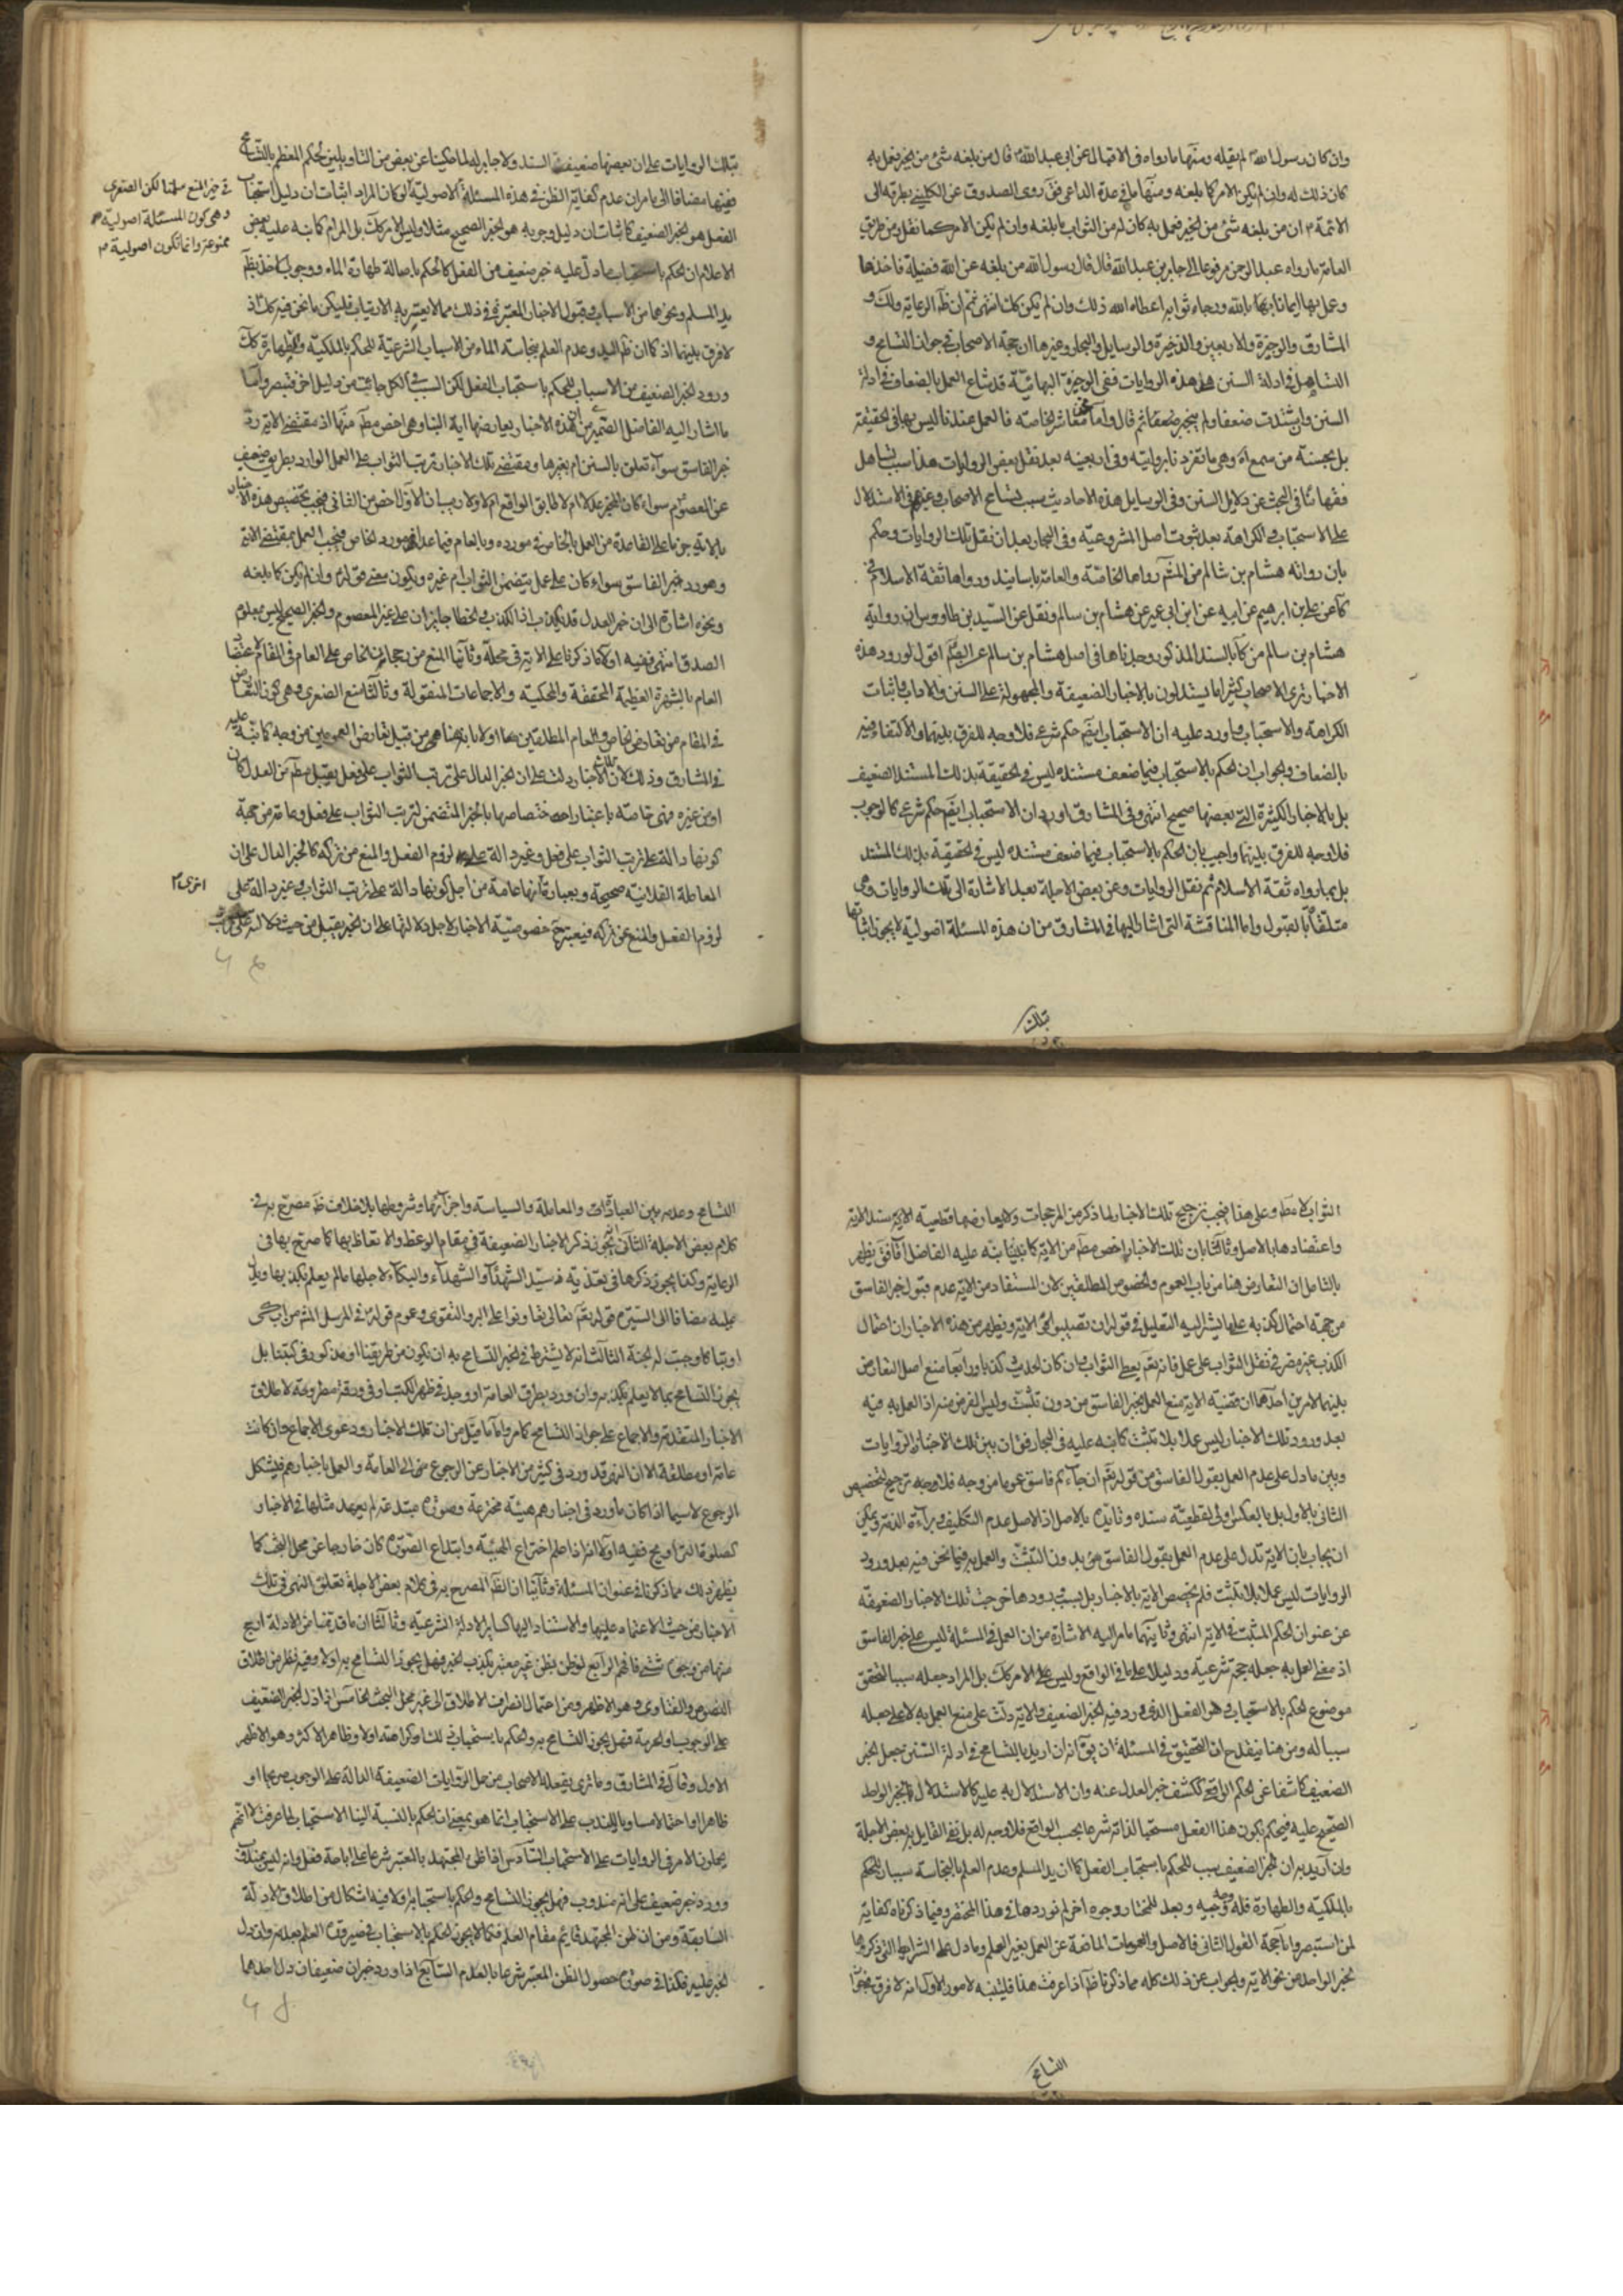 وان كان رسول الله لم يقله ومنها ما رواه في الاقبال عن ابي عبد الله قال من بلغه شئ من الخير فعمل به
كان ذلك له وان لم يكن الامر كما بلغه ومنها ما في عدة الداعي فق روى الصدوق عن الكليني بطرقه الى
الائمة ان من بلغه شئ من الخير فعمل به كان له من الثواب ما بلغه وان لم يكن الامر كما نقل ومن طريق
العامة ما رواه عبد الرحمن مرفوعا الى جابر بن عبد الله قال قال رسول الله من بلغه عن الله فضيلة فاخذها
وعمل بها ايمانا بالله ورجاء ثوابه اعطاه الله ذلك وان لم يكن كك انتهى ثم ان ظ الرعاية ولك و
المشارق والوجيزة والاربعين والذخيرة والوسايل والبحار وغيرها ان حجة الاصحاب في جواز التسامح و
التساهل في ادلة السنن هذه الروايات ففي الوجيزة البهائية قد شاع العمل بالضعاف في ادلة
السنن وان اشتدت ضعفا ولم ينجبر ضعفها ثم قال واما نحن معاشر الخاصة فالعمل عندنا ليس بها في الحقيقة
بل بحسنة من سمع اه وهي ما تفرد نا بروايته وفي اربعينه بعد نقل بعض الروايات هذا سبب تساهل
فقهائنا في البحث عن دلايل السنن وفي الوسايل هذه الاحاديث سبب تسامح الاصحاب وغيرهم في الاستدلال
على الاستحباب والكراهة بعد ثبوت اصل المشروعية وفي البحار بعد ان نقل تلك الروايات وحكم
بان رواية هشام بن سالم من المش رواها الخاصة والعامة باسانيد ورواها ثقة الاسلام في
كا عن علي بن ابرهيم عن ابيه عن ابن ابي عمير عن هشام بن سالم ونقل عن السيد بن طاووس ان رواية
هشام بن سالم من كا بالسند المذكور وجدناها في اصل هشام بن سالم عن الصم اقول لورود هذه
الاخبار ترى الاصحاب كثيرا ما يستدلون بالاخبار الضعيفة والمجهولة على السنن والاداب واثبات
الكراهة والاستحباب واورد عليه ان الاستحباب ايضم حكم شرعي فلا وجه للفرق بينهما والاكتفاء فيه
بالضعاف والجواب ان الحكم بالاستحباب فيما ضعف مستنده ليس في الحقيقة بذلك المستند الضعيف
بل بالاخبار الكثيرة التي بعضها صحيح انتهى وفي المشارق اورد ان الاستحباب ايضم حكم شرعي كالوجوب
فلا وجه للفرق بينهما واجيب بان الحكم بالاستحباب فيما ضعف مستنده ليس في الحقيقة بذلك المستند
بل بما رواه ثقة الاسلام ثم نقل الروايات وعن بعض الاجلة بعد الاشارة الى تلك الروايات وهي
متلقاة بالقبول واما المناقشة التي اشار اليها في المشارق من ان هذه المسئلة اصولية لا يجوز اثباتها
تلك
بتلك الروايات على ان بعضها ضعيف السند ولا جابر له لما حكينا عن بعض من التاويلين لحكم المعظم بالتسامح
ففيها مضافا الى ما مر ان عدم كفاية الظن في هذه المسئلة الاصولية لو كان المراد اثبات ان دليل استحباب
في حيز المنع سلمنا لكن الصغرى
وهي كون المسئلة اصولية
ممنوعة وانما تكون اصولية م
الفعل هو الخبر الضعيف كاثبات ان دليل وجوبه هو الخبر الصحيح مثلا وليس الامر كك بل المرام كما نبه عليه بعض
الاعلام ان الحكم باستحباب ما دل عليه خبر ضعيف من الفعل كالحكم باصالة طهارة الماء ووجوب الاخذ بظم
يد المسلم ونحوهما من الاسباب وقبول الاخبار المعتبرة في ذلك مما لا يعتريه الارتياب فليكن ما نحن فيه كك اذ
لا فرق بينهما اذ كما ان ظم اليد وعدم العلم بنجاسة الماء من الاسباب الشرعية للحكم بالملكية والطهارة كك
ورود الخبر الضعيف من الاسباب للحكم باستحباب الفعل لكن السبب في الكل جاء من دليل اخر فتبصر واما
ما اشار اليه الفاضل من ان هذه الاخبار يعارضها اية النبا وهي اخص مطم منها اذ مقتضى الاية رد
خبر الفاسق سواء تعلق بالسنن ام بغيرها ومقتضى تلك الاخبار ترتب الثواب على العمل الوارد بطريق ضعيف
عن المعصوم سواء كان المخبر عدلا ام لا طابق الواقع ام لا ولا ريب ان الاول اخص من الثاني فيجب تخصيص هذه الاخبار
بالاية جريا على القاعدة من العمل بالخاص في مورده وبالعام فيما عدا مورد الخاص فيجب العمل بمقتضى الاية
وهو رد خبر الفاسق سواء كان على عمل يتضمن الثواب ام غيره ويكون معنى قوله وان لم يكن كما بلغه
ونحوه اشارة الى ان خبر العدل قد يكذب اذ الكذب والخطا جايزان على غير المعصوم والخبر الصحيح ليس بمعلوم
الصدق انتهى ففيه اولا ما ذكرنا على الاية في محله وثانيا المنع من رجحان الخاص على العام في المقام لاعتضاد
العام بالشهرة العظيمة المحققة والمحكية والاجماعات المنقولة وثالثا منع الصغرى وهي كون التعارض
في المقام من تعارض الخاص والعام المطلقين بل هي من قبيل تعارض العمومين من وجه كما نبه عليه
في المشارق وذلك لان تلك الاخبار دلت على ان الخبر الدال على ترتب الثواب على فعل يقبل مطم من العدل كان
او من غيره فهي خاصة باعتبار اختصاصها بالخبر المتضمن لترتب الثواب على فعل وعامة من جهة
كونها دالة على ترتب الثواب على فعل وغير دالة على لزوم الفعل والمنع من تركه كالخبر الدال على ان
المعاملة الفلانية صحيحة وبعبارة اخرى انها عامة من اجل كونها دالة على ترتب الثواب وغير دالة على
لزوم الفعل والمنع عن تركه فيعتبر ح خصوصية الاخبار لاجل دلالتها على ان الخبر يقبل من حيث دلالته على ترتب
الثواب لا مطم وعلى هذا يجب ترجيح تلك الاخبار لما ذكر من المرجحات ولا يعارضها قطعية الاية سند الاية
واعتضادها بالاصل وثالثا بان تلك الاخبار اخص مطم من الاية كما نبه عليه الفاضل اقا فق يظهر
بالتامل ان التعارض هنا من باب العموم والخصوص المطلقين لان المستفاد من الاية عدم قبول خبر الفاسق
من جهة احتمال كذبه على ما يشير اليه التعليل في قوله ان تصيبوا الاية ويظهر من هذه الاخبار ان احتمال
الكذب غير مضر في نقل الثواب على عمل فانه تعم يعطي الثواب وان كان الحديث كذبا ورابعا منع اصل التعارض
بينهما لامرين احدهما ان قضية الاية منع العمل بخبر الفاسق من دون تثبت وليس الفرض منه اذ العمل به فيه
بعد ورود تلك الاخبار ليس عملا بلا تثبت كما نبه عليه في البحار فق ان بين تلك الاخبار والروايات
وبين ما دل على عدم العمل بقول الفاسق من قوله تعم ان جاءكم فاسق عموما من وجه فلا وجه ترجيح التخصيص
الثاني بالاول بل بالعكس اولى لقطعية سنده وتايده بالاصل اذ الاصل عدم التكليف وبراءة الذمة ويمكن
ان يجاب بان الاية تدل على عدم العمل بقول الفاسق من بدون التثبت والعمل به فيما نحن فيه بعد ورود
الروايات ليس عملا بلا تثبت فلم يخصص الاية بالاخبار بل بسبب ورودها خرجت تلك الاخبار الضعيفة
عن عنوان الحكم المثبت في الاية انتهى وثانيهما ما مر اليه الاشارة من ان العمل في المسئلة ليس على خبر الفاسق
اذ معنى العمل به جعله حجة شرعية ودليلا على ما في الواقع وليس الامر كك بل المراد جعله سببا لتحقق
موضوع الحكم بالاستحباب وهو الفعل الذي ورد فيه الخبر الضعيف والاية دلت على منع العمل به لا على جعله
سببا له ومن هنا ينقدح ان التحقيق في المسئلة ان يق انه ان اريد بالتسامح في ادلة السنن جعل الخبر
الضعيف كاشفا عن الحكم الواقعي ككشف خبر العدل عنه وان الاستدلال به عليه كالاستدلال بالخبر الواحد
الصحيح عليه فيحكم بكون هذا الفعل مستحبا لذاته شرعا بحسب الواقع فلا وجه له بل نفى القايل به بعض الاجلة
وان اريد به ان الخبر الضعيف سبب للحكم باستحباب الفعل كما ان يد المسلم وعدم العلم بالنجاسة سببان للحكم
بالملكية والطهارة فله وجه وجيه وبعد للمختار وجوه اخر لم نوردها في هذا المختصر وفيما ذكرناه كفاية
لمن استبصر واما حجة القول الثاني فالاصل والعمومات الناهية عن العمل بغير العلم وما دل على الشرايط التي ذكروها
لخبر الواحد من نحو الاية والجواب عن ذلك كله مما ذكرنا ظم اذا عرفت هذا فلينبه لامور الاول انه لا فرق في جواز
التسامح
التسامح وعدمه بين العبادات والمعاملة والسياسة واجزائها وشروطها بلا خلاف ظم مصرح به في
كلام بعض الاجلة الثاني يجوز ذكر الاخبار الضعيفة في مقام الوعظ والاتعاظ بها كما صرح بها في
الرعاية وكذا يجوز ذكرها في تعزية سيد الشهداء والشهداء والبكاء لاجلها ما لم يعلم بكذبها ويدل
عليه مضافا الى السيرة قوله تعم تعاونوا على البر والتقوى وعموم قوله في المرسل المش من ابكى
او تباكى وجبت له الجنة الثالث انه لا يشترط في الخبر التسامح به ان يكون من طريقنا او مذكور في كتبنا بل
يجوز التسامح بما لا يعلم بكذبه وان ورد بطرق العامة او وجد في ظهر الكتاب او في ورقة مطروحة لاطلاق
الاخبار المتقدمة والاجماع على جواز التسامح كما مر واما ما قيل من ان تلك الاخبار ودعوى الاجماع وان كانت
عامة او مطلقة الا ان النهي قد ورد في كثير من الاخبار عن الرجوع الى العامة والعمل باخبارهم فيشكل
الرجوع لا سيما اذا كان ما ورد في اخبارهم هيئة مخترعة وصورة مبتدعة لم يعهد مثلها في الاخبار
كصلوة التراويح ففيه اولا انه اذا علم اختراع الهيئة وابتداع الصورة كان خارجا عن محل البحث كما
يظهر ذلك مما ذكرنا في عنوان المسئلة وثانيا ان الظم المصرح به في كلام بعض الاجلة تعلق النهي في تلك
الاخبار من حيث الاعتماد عليها والاستناد اليها كساير الادلة الشرعية وثالثا ان ما قدمنا من الادلة ارجح
منها من وجوه شتى فافهم الرابع لو ظن بظن غير معتبر بكذب الخبر فهل يجوز التسامح به او لا وفيه نظر من اطلاق
النصوص والفتاوى وهو الاظهر ومن احتمال انصراف الاطلاق الى غير محل البحث الخامس اذا دل الخبر الضعيف
على الوجوب او الحرمة فهل يجوز التسامح به والحكم باستحباب ذلك او كراهته او لا وظاهر الاكثر وهو الاظهر
الاول وقال في المشارق وما ترى يفعله الاصحاب من حمل الروايات الضعيفة الدالة على الوجوب صريحا او
ظاهرا او احتمالا مساويا للندب على الاستحباب انما هو بمعنى ان الحكم بالنسبة الينا الاستحباب لما عرفت لا انهم
يحملون الامر في الروايات على الاستحباب السادس اذا ظن المجتهد بالمعتبر شرعا على اباحة فعل وانه ليس بمندوب
وورد خبر ضعيف على انه مندوب فهل يجوز التسامح والحكم باستحبابه او لا فيه اشكال من اطلاق الادلة
السابقة ومن ان ظن المجتهد قائم مقام العلم فكما لا يجوز الحكم بالاستحباب في صورة العلم بعدمه وان دل
الخبر عليه فكذا في صورة حصول الظن المعتبر شرعا بالعدم السابع اذا ورد خبران ضعيفان دل احدهما